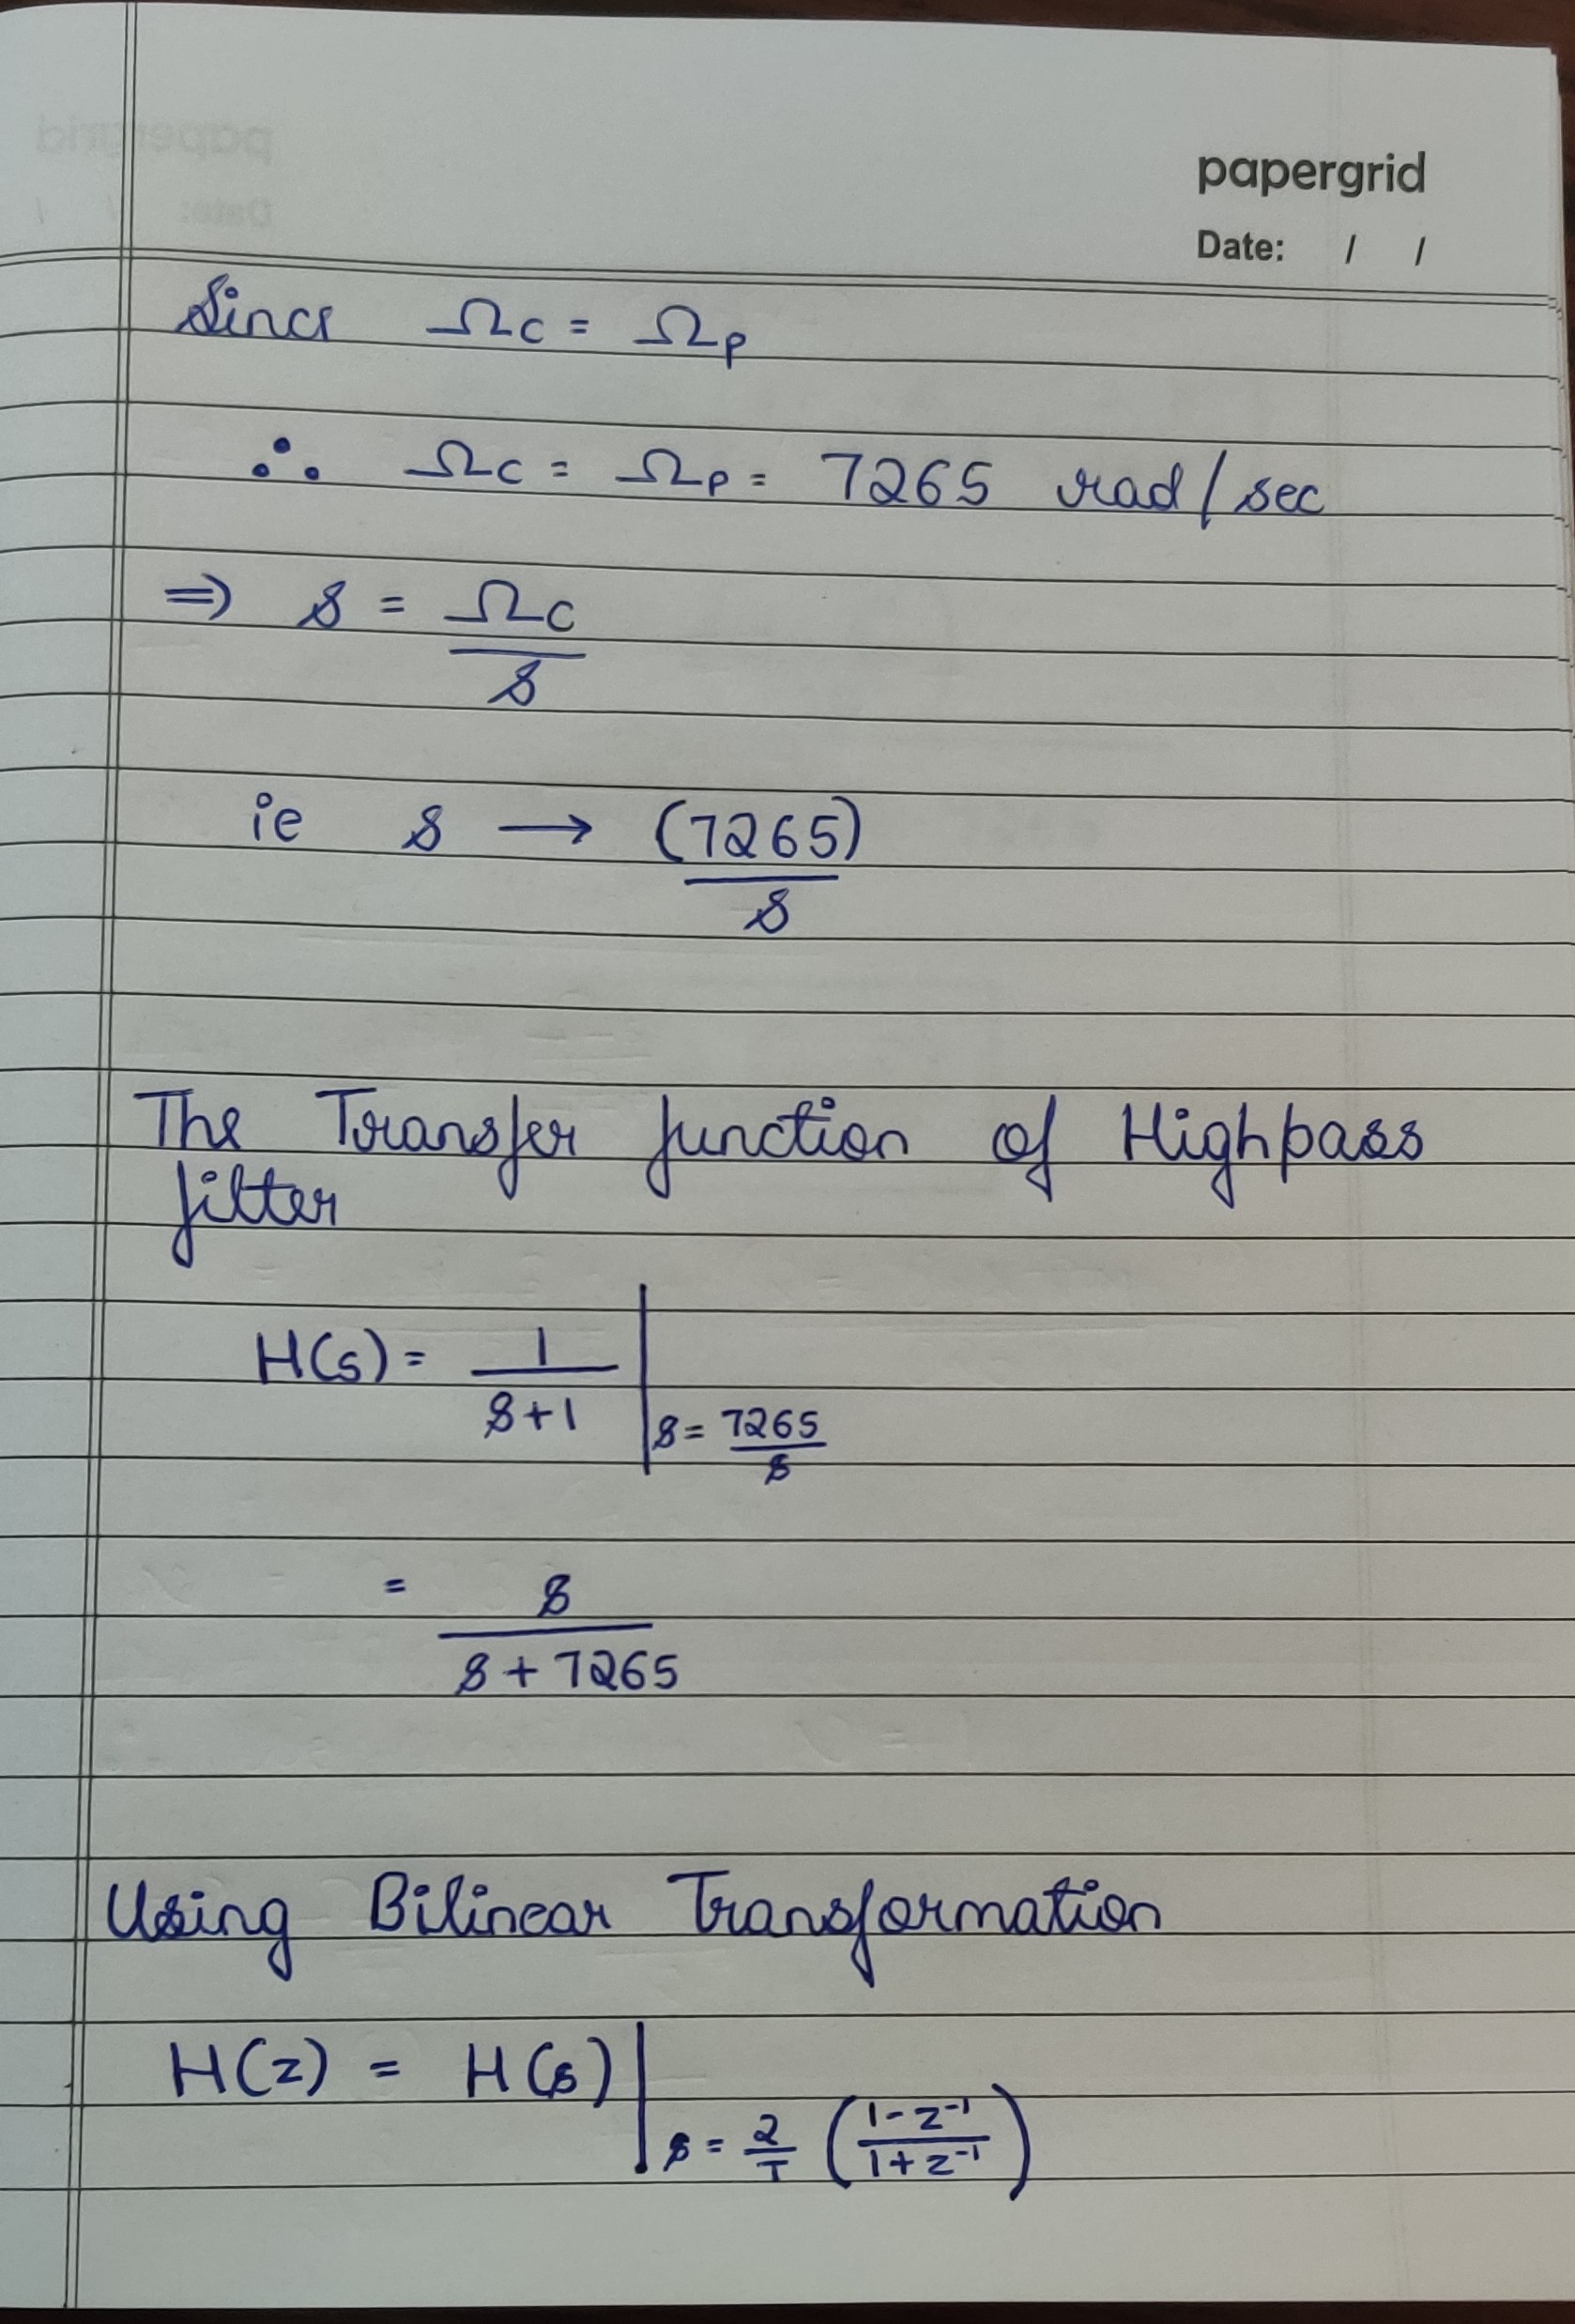 papergrid
Date: / /
Since Ωc = Ωp
∴ Ωc = Ωp = 7265 rad/sec
⇒ s = Ωc/s
ie s → (7265)/s
The Transfer function of Highpass
filter
H(s) = 1/(s+1) | s = 7265/s
= s/(s+7265)
Using Bilinear Transformation
H(z) = H(s) | s = 2/T ((1-z⁻¹)/(1+z⁻¹))